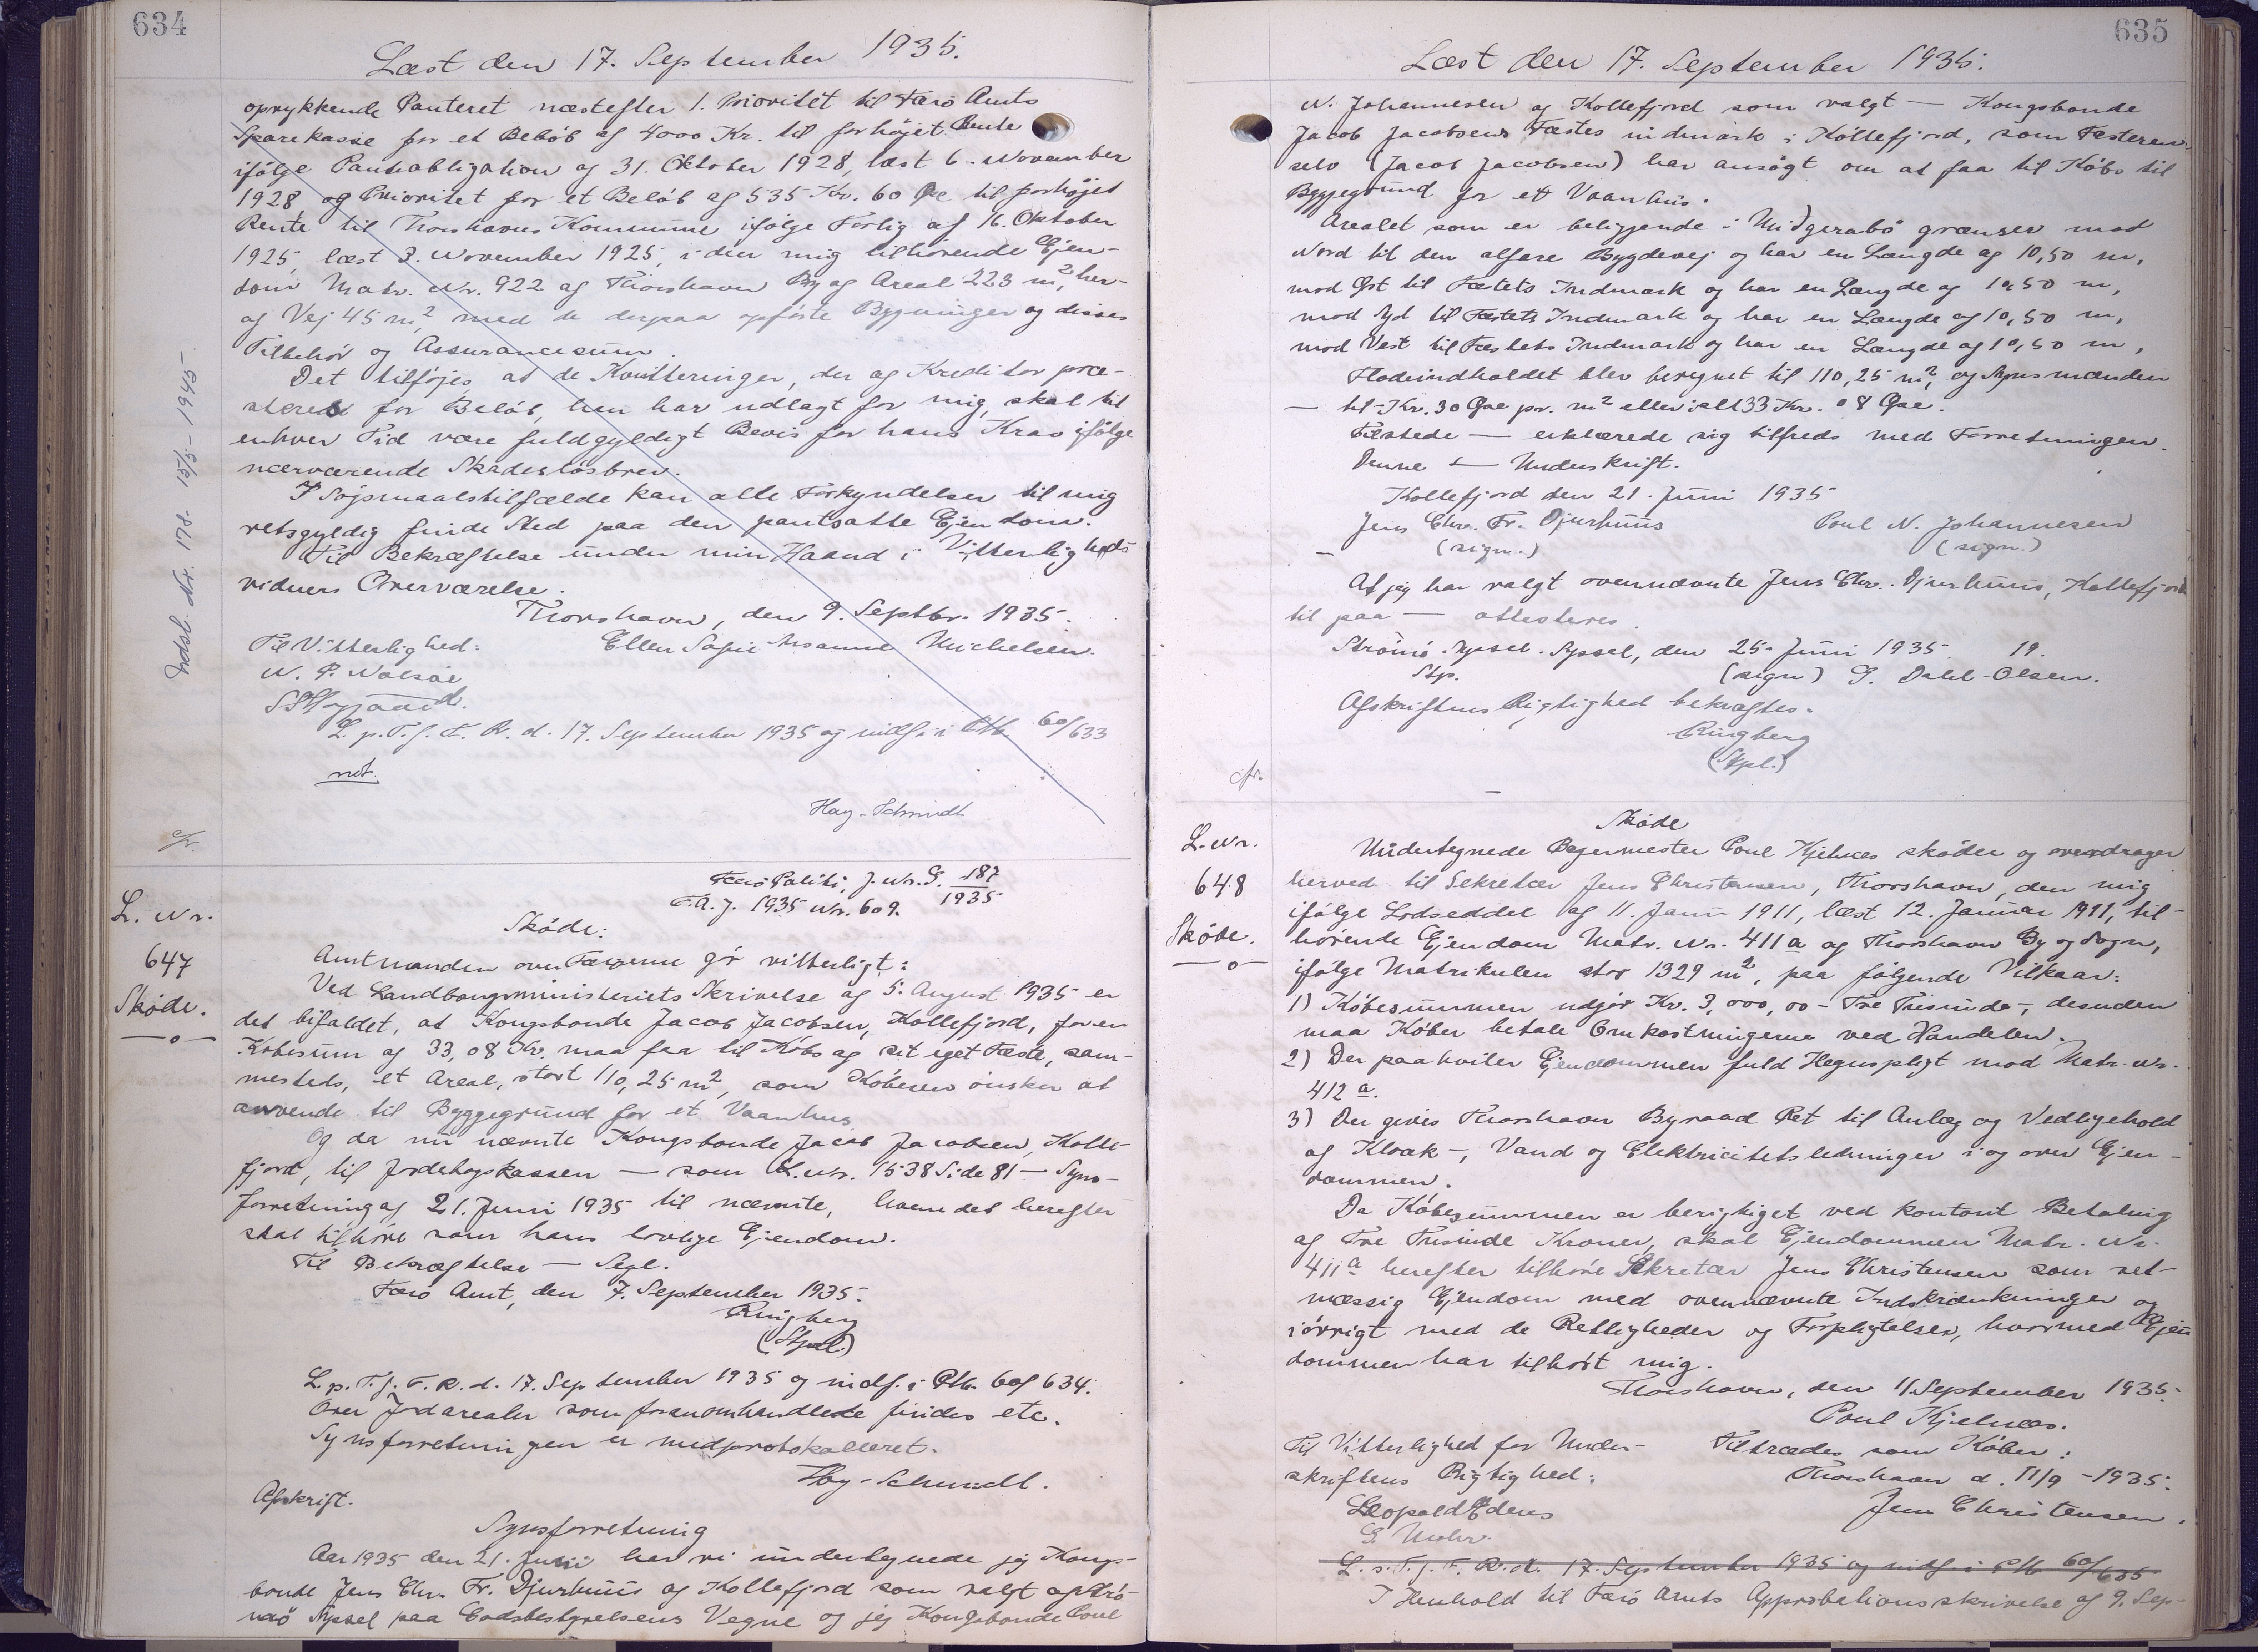 634
Læst den 17. September 1935.
oprykkende Panteret næstefter 1. Prioritet til Færø Amts
Sparekasse for et Beløb af 4000 Kr. til forhøjet Rente
ifølge Panteobligation af 31. Oktober 1928, læst 6. November
1928 og Prioritet for et Beløb af 535 Kr. 60 Øre til forhøjet
Rente til Thorshavns Kommune ifølge Forlig af 16. Oktober
1925, læst 3. November 1925, i den mig tilhørende Ejen-
dom Matr. Nr. 922 af Thorshavn By af Areal 223 m², her-
af Vej 45 m², med de derpaa opførte Bygninger og disses
Tilbehør og Assurancesum.
Det tilføjes, at de Kvitteringer, der af Kreditor præ-
steres for Beløb, han har udlagt for mig, skal til
enhver Tid være fuldgyldigt Bevis for hans Krav ifølge
nærværende Skadesløsbrev.
I Søgsmaalstilfælde kan alle Forkyndelser til mig
retsgyldig finde Sted paa den pantsatte Ejendom.
Til Bekræftelse under min Haand i Vitterligheds-
vidners Overværelse.
Thorshavn, den 9. Septbr. 1935.
Til Vitterlighed: Ellen Sofie Susanne Michelsen.
N. P. Nolsøe
L. p. T. f. F. R. d. 17. September 1935 og indf. i Ptb. 60/633
not.
Hay-Schmidt
Indsl. Nr. 178. 15/5 - 1945.
cfr.
L. Nr.
647
Skøde.
—o—
Færø Politi, J. Nr. G. 187/1935
F.A. J. 1935 Nr. 609.
Skøde:
Amtmanden over Færøerne gør vitterligt:
Ved Landbrugsministeriets Skrivelse af 5. August 1935 er
det bifaldet, at Kongsbonde Jacob Jacobsen, Kollefjord, for en
Købesum af 33,08 Kr. maa faa til Købs af sit eget Fæste, sam-
mesteds, et Areal, stort 110,25 m², som Køberen ønsker at
anvende til Byggegrund for et Vaanhus
Og da nu nævnte Kongsbonde Jacob Jacobsen, Kolle-
fjord, til Jordebogskassen — som L. Nr. 1538 Side 81 — Syns-
forretning af 21. Juni 1935 til nævnte, hvem det herefter
skal tilhøre som hans lovlige Ejendom.
Til Bekræftelse — Segl.
Færø Amt, den 7. September 1935.
Ringberg
(Stpl.)
L. p. T. f. F. R. d. 17. September 1935 og indf. i Ptb. 60 f 634.
Over Jordarealer som foranomhandlede findes etc.
Synsforretningen er medprotokolleret.
Hay-Schmidt.
Afskrift.
Synsforretning
Aar 1935 den 21. Juni har vi undertegnede jeg Kongs-
bonde Jens Chr. Fr. Djurhuus af Kollefjord som valgt af Strø-
mø Syssel paa Godsbestyrelsens Vegne og jeg Kongsbonde Poul
635
Læst den 17. September 1935.
N. Johannesen af Kollefjord som valgt — Kongsbonde
Jacob Jacobsens Fæstes indmark i Kollefjord, som Fæsteren
selv (Jacob Jacobsen) har ansøgt om at faa til Købs til
Byggegrund for et Vaanhus.
Arealet som er beliggende i Miðgerabø grænser mod
Nord til den alfare Bygdevej og har en Længde af 10,50 m,
mod Øst til Fæstets Indmark og har en Længde af 10,50 m,
mod Syd til Fæstets Indmark og har en Længde af 10,50 m,
mod Vest til Fæstets Indmark og har en Længde af 10,50 m,
Fladeindholdet blev beregnet til 110,25 m², og Synsmænden
— til - Kr. 30 Øre pr. m² eller ialt 33 Kr. 08 Øre.
Tilstede — erklærede sig tilfreds med Forretningen.
Denne — Underskrift.
Kollefjord den 21. Juni 1935
Jens Chr. Fr. Djurhuus Poul N. Johannesen
(sign.) (sign.)
At jeg har valgt ovennævnte Jens Chr. Djurhuus, Kollefjord
til paa — attesteres.
Strømø Syssel. Syssel, den 25. Juni 1935. 19.
Stp. (sign) G. Dahl-Olsen.
Afskriftens Rigtighed bekræftes.
Ringberg
(Stpl.)
cfr.
L. Nr.
648
Skøde.
—o—
Skøde
Undertegnede Bagermester Poul Kjelnæs skøder og overdrager
herved til Sekretær Jens Christensen, Thorshavn, den mig
ifølge Lodseddel af 11. Januar 1911, læst 12. Januar 1911, til-
hørende Ejendom Matr. Nr. 411a af Thorshavn By og Sogn,
ifølge Matrikulen stor 1329 m², paa følgende Vilkaar:
1) Købesummen udgør Kr. 3,000,00 - Tre Tusinde -, desuden
maa Køber betale Omkostningerne ved Handelen.
2) Der paahviler Ejendommen fuld Hegnspligt mod Matr. Nr.
412 a.
3) Der gives Thorshavn Byraad Ret til Anlæg og Vedligehold
af Kloak-, Vand og Elektricitetsledninger i og over Ejen-
dommen.
Da Købesummen er berigtiget ved kontant Betaling
af Tre Tusinde Kroner, skal Ejendommen Matr. Nr.
411a herefter tilhøre Sekretær Jens Christensen som ret-
mæssig Ejendom med ovennævnte Indskrænkninger og
iøvrigt med de Rettigheder og Forpligtelser, hvormed Ejen
dommen har tilhørt mig.
Thorshavn, den 11. September 1935.
Poul Kjelnæs.
Til Vitterlighed for Under- Tiltrædes som Køber:
skriftens Rigtighed: Thorshavn d. 11/9 - 1935.
Leopold Edens Jens Christensen.
G. Mohr.
L. p. T. f. F. R. d. 17. September 1935 og indf. i Ptb 60/635
I Henhold til Færø Amts Approbationsskrivelse af 9. Sep-